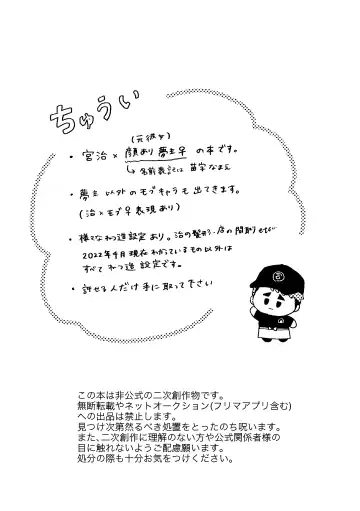 ちゅうい
(元彼女)
・宮治×顔あり夢主子の本です。
↳名前表記は苗字なまえ
・夢主以外のモブキャラも出てきます。
(治×モブ子表現あり)
・様々なねつ造設定あり。治の整形・店の間取りetc
2022年9月現在わかっているもの以外は
すべてねつ造設定です。
・許せる人だけ手に取って下さい
この本は非公式の二次創作物です。
無断転載やネットオークション(フリマアプリ含む)
への出品は禁止します。
見つけ次第然るべき処置をとったのち呪います。
また、二次創作に理解のない方や公式関係者様の
目に触れないようご配慮願います。
処分の際も十分お気をつけください。